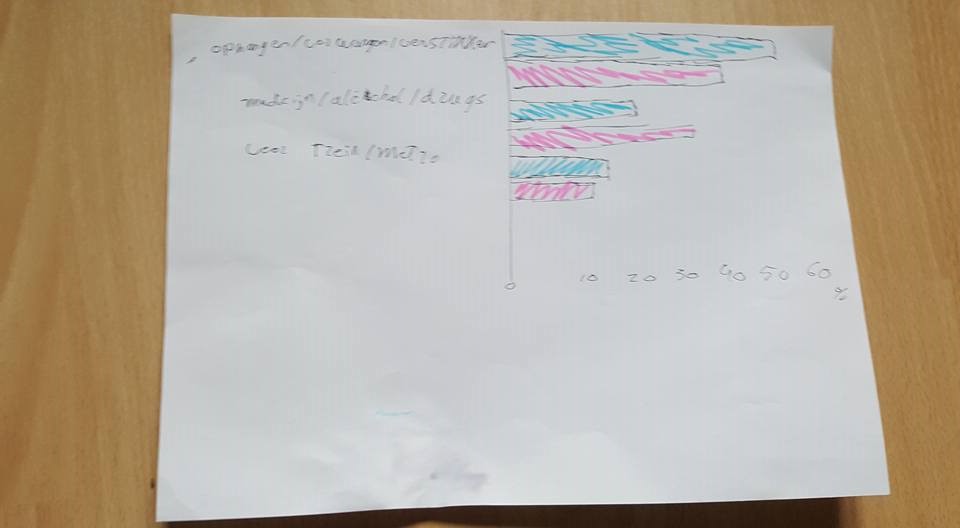 ophangen/verwurgen/verstikken
medicijn/alcohol/drugs
voor Trein/metro
0 10 20 30 40 50 60
%